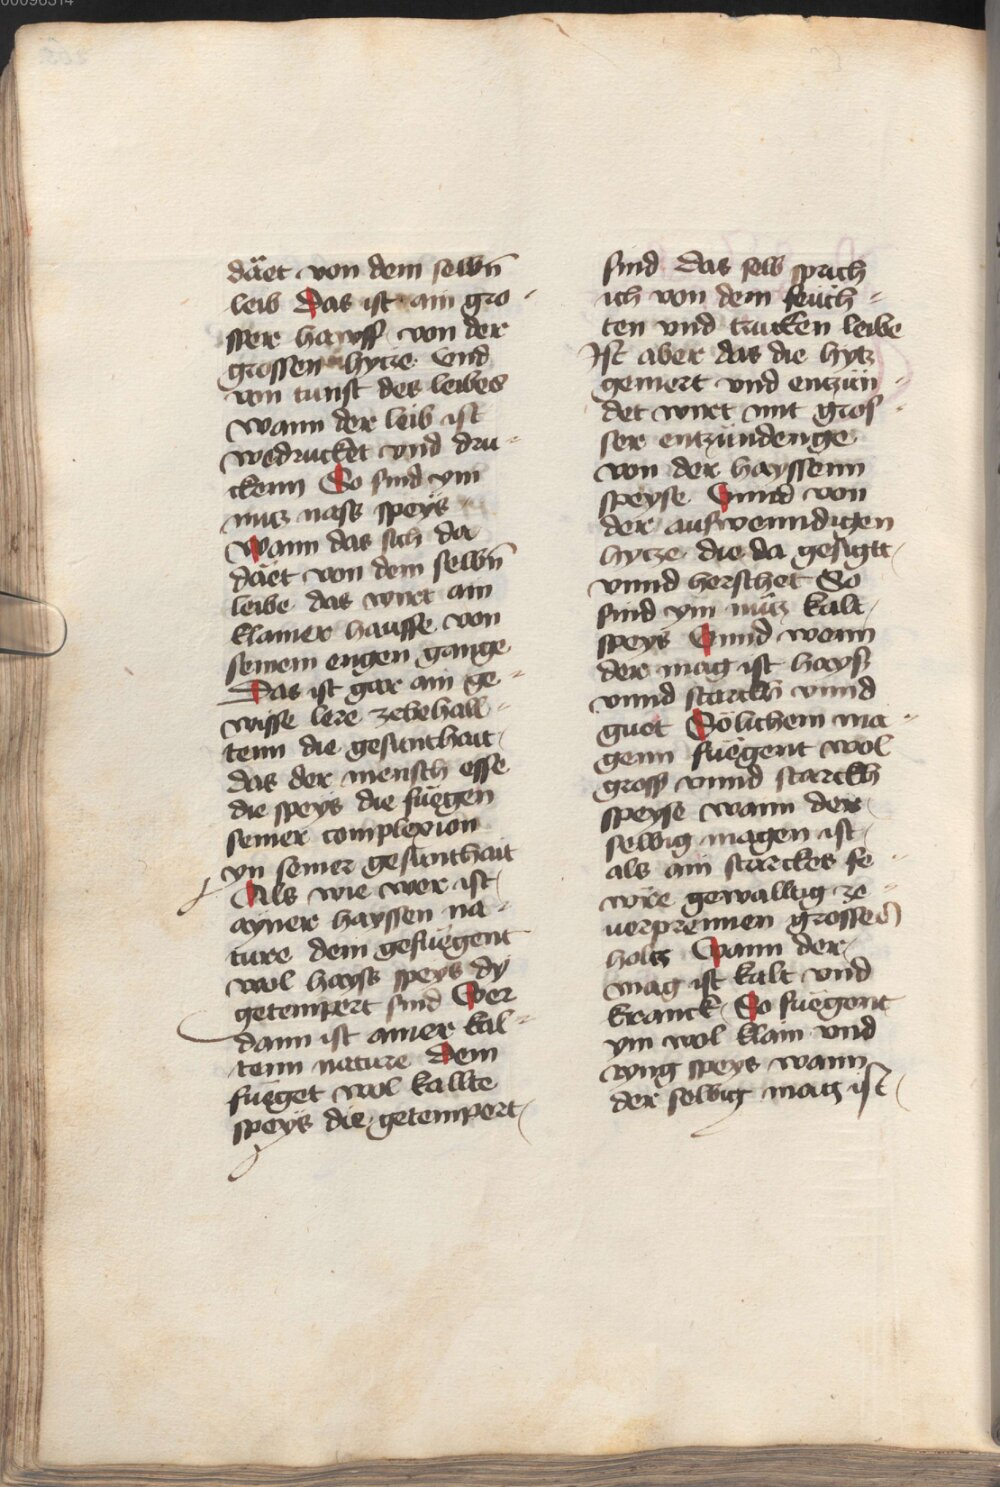 00096514
däet von dem selbn̄
leib Das ist ain gro-
sser hawff von der
grossen hytze Vnd
von tunst des leibes
wann der leib ist
wedrucket vnd dru-
ckenn So sind ym
nutz nass speÿs
Wann das sich da
däet von dem selbn̄
leibe das wirt ain
klainer hauffe von
seinem engen gange
Das ist gar ain ge-
wisse lere zebehall-
tenn die gesunthait
das der mensch esse
die speys die füegen
seiner complexion
yn seiner gesunthait
Als wie wer ist
ayner hayssen na-
ture dem gefüegent
wol hayss speys dy
getempert sind Wer
dann ist ainer kal-
tenn nature Dem
füeget wol kallte
speÿs die getempert
sind das selb sprich
ich von dem feüch-
ten vnd trucken leibe
Ist aber das die hytz
gemert vnd entzün-
det wirt mit gros-
ser entzündenge
von der hayssenn
speyse Vnnd von
der aufwenndigen
hytze die da gesigtt
vnnd herschet So
sind ym nütz kalt
speys Vnnd wenn
der mag ist hayß
vnnd starckh vnnd
guet Sölichem ma-
genn füegent wol
gross vnnd starckh
speyse wann der
selbig magen ist
als ain starckes fe-
wre gewalltig ze-
uerprennen grosses
holtz Wann der
mag ist kalt vnd
kranck So füegent
ym wol klain vnd
ryng speys wann
der selbig mag ist